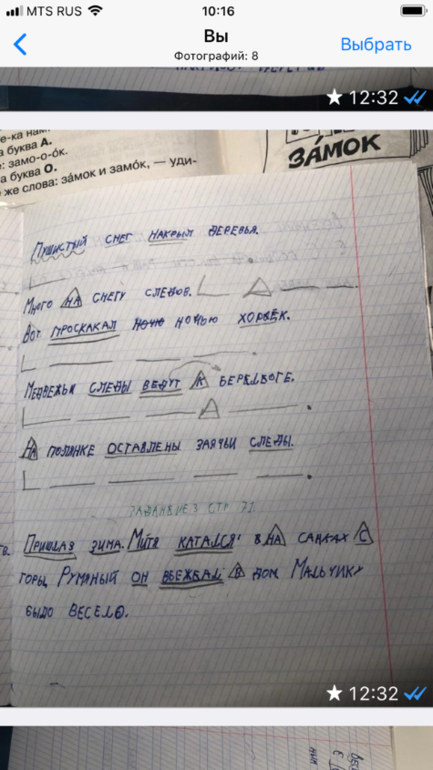 MTS RUS
10:16
Вы
Фотографий: 8
Выбрать
12:32
е-ка
а буква А.
: замо-о-о́к.
а буква О.
же слова: за́мок и замо́к, — уди-
ЗА́МОК
Пушистый снег накрыл деревья.
Много на снегу следов.
Вот проскакал ночю ночью хорёк.
Медвежьи следы ведут к
На полянке оставлены заячьи следы.
Задание 3 стр 71
зима. Митя катался на санках с
горы. Румяный он вбежал в дом Мальчику
было весело.
12:32